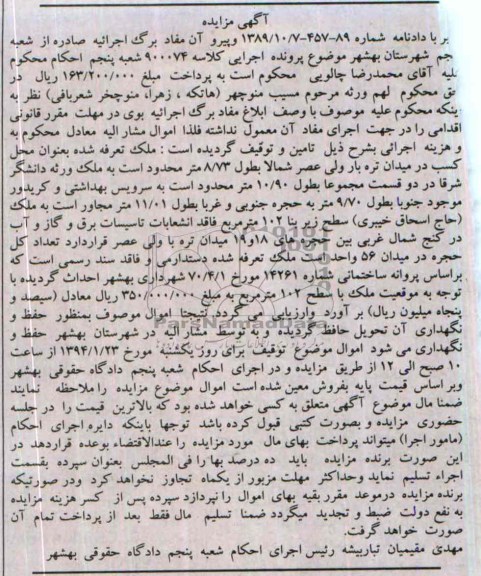 آگهی مزایده
بر با دادنامه شماره ۸۹-۴۵۷-۱۳۸۹/۱۰/۷ وپیرو آن مفاد برگ اجرائیه صادره از شعبه
جم شهرستان بهشهر موضوع پرونده اجرایی کلاسه ۹۰۰۰۷۴ شعبه پنجم احکام محکوم
لیه آقای محمدرضا چالویی محکوم است به پرداخت مبلغ ۱۶۳/۲۰۰/۰۰۰ ریال در
حق محکوم لهم ورثه مرحوم مسیب منوچهر (هاتکه ، زهرا، منوچخر شعربافی) نظر به
اینکه محکوم علیه موصوف با وصف ابلاغ مفاد برگ اجرائیه بوی در مهلت مقرر قانونی
اقدامی را در جهت اجرای مفاد آن معمول نداشته فلذا اموال مشار الیه معادل محکوم به
و هزینه اجرائی بشرح ذیل تامین و توقیف گردیده است : ملک تعرفه شده بعنوان محل
کسب در میدان تره بار ولی عصر شمالا بطول ۸/۷۳ متر محدود است به ملک ورثه دانشگر
شرقا در دو قسمت مجموعا بطول ۱۰/۹۰ متر محدود است به سرویس بهداشتی و کریدور
موجود جنوبا بطول ۹/۷۰ متر به حجره جنوبی و غربا بطول ۱۱/۰۱ متر مجاور است به ملک
(حاج اسحاق خیبری) سطح زیر بنا ۱۰۲ مترمربع فاقد انشعابات تاسیسات برق و گاز و آب
در کنج شمال غربی بین حجره های ۱۸و۱۹ میدان تره با ولی عصر قراردارد تعداد کل
حجره در میدان ۵۶ واحد است ملک تعرفه شده دستدارمی و فاقد سند رسمی است که
براساس پروانه ساختمانی شماره ۱۴۲۶۱ مورخ ۷۰/۴/۱ شهرداری بهشهر احداث گردیده با
توجه به موقعیت ملک با سطح ۱۰۲ مترمربع به مبلغ ۳۵۰/۰۰۰/۰۰۰ ریال معادل (سیصد و
پنجاه میلیون ریال) بر آورد وارزیابی می گردد. نتیجتا اموال موصوف بمنظور حفظ و
نگهداری آن تحویل حافظ گردیده و به توسط مشارالیه در شهرستان بهشهر حفظ و
نگهداری می شود اموال موضوع توقیف برای روز یکشنبه مورخ ۱۳۹۴/۱/۲۳ از ساعت
۱۰ صبح الی ۱۲ از طریق مزایده و در اجرای احکام شعبه پنجم دادگاه حقوقی بهشهر
وبر اساس قیمت پایه بفروش معین شده است اموال موضوع مزایده را ملاحظه نمایند
ضمنا مال موضوع آگهی متعلق به کسی خواهد شده بود که بالاترین قیمت را در جلسه
حضوری مزایده و بصورت کتبی قبول کرده باشد توجها باینکه دایره اجرای احکام
(مامور اجرا) میتواند پرداخت بهای مال مورد مزایده را عندالاقتضاء بوعده قراردهد در
این صورت برنده مزایده باید ده درصد بها را فی المجلس بعنوان سپرده بقسمت
اجراء تسلیم نماید وحداکثر مهلت مزبور از یکماه تجاوز نخواهد کرد ودر صورتیکه
برنده مزایده درموعد مقرر بقیه بهای اموال را نپردازد سپرده پس از کسر هزینه مزایده
به نفع دولت ضبط و تجدید میگردد ضمنا تسلیم مال فقط بعد از پرداخت تمام آن
صورت خواهد گرفت.
مهدی مقیمیان تباربیشه رئیس اجرای احکام شعبه پنجم دادگاه حقوقی بهشهر